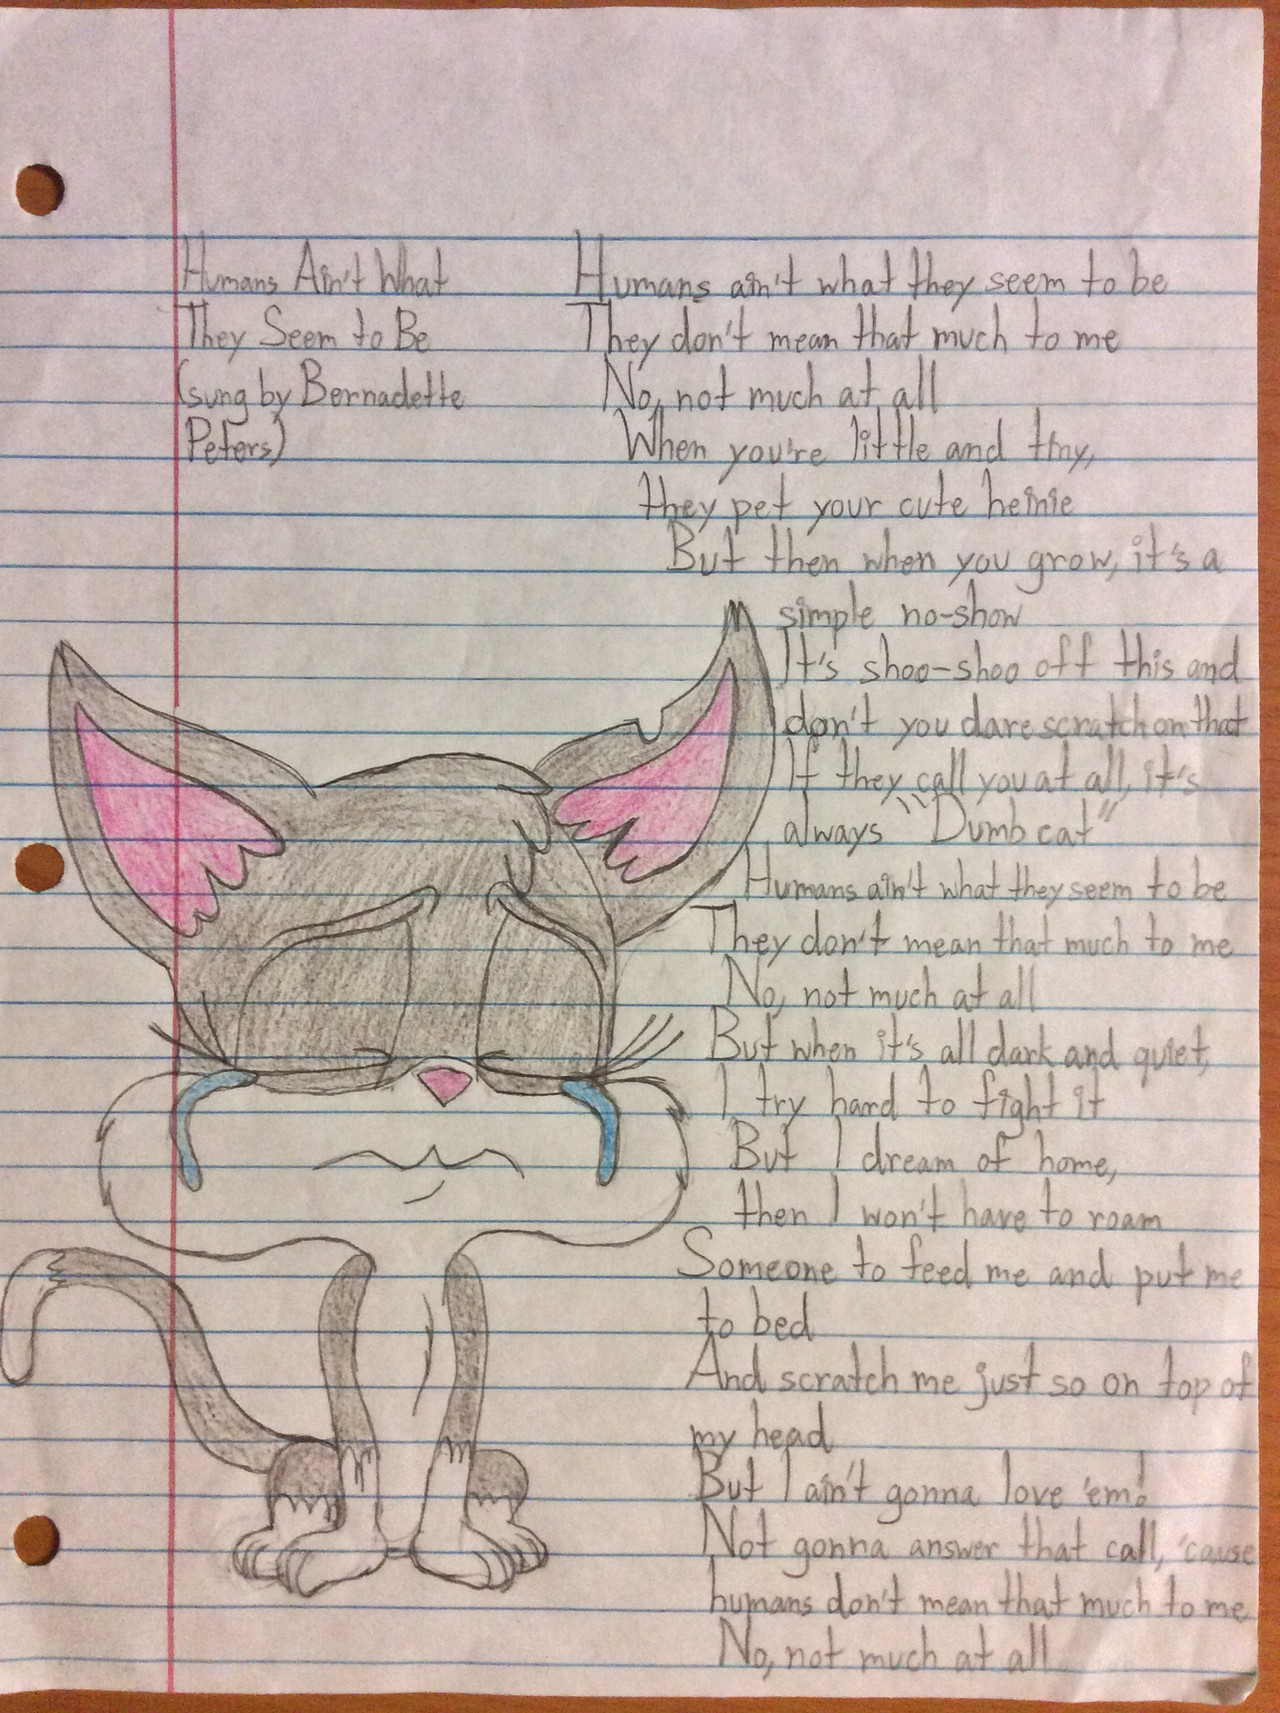 Humans Ain't What
They Seem to Be
(sung by Bernadette
Peters)
Humans ain't what they seem to be
They don't mean that much to me
No, not much at all
When you're little and tiny,
they pet your cute heinie
But then when you grow, it's a
simple no-show
It's shoo-shoo off this and
don't you dare scratch on that
If they call you at all, it's
always "Dumb cat"
Humans ain't what they seem to be
They don't mean that much to me
No, not much at all
But when it's all dark and quiet,
I try hard to fight it
But I dream of home,
then I won't have to roam
Someone to feed me and put me
to bed
And scratch me just so on top of
my head
But I ain't gonna love 'em!
Not gonna answer that call, 'cause
humans don't mean that much to me
No, not much at all